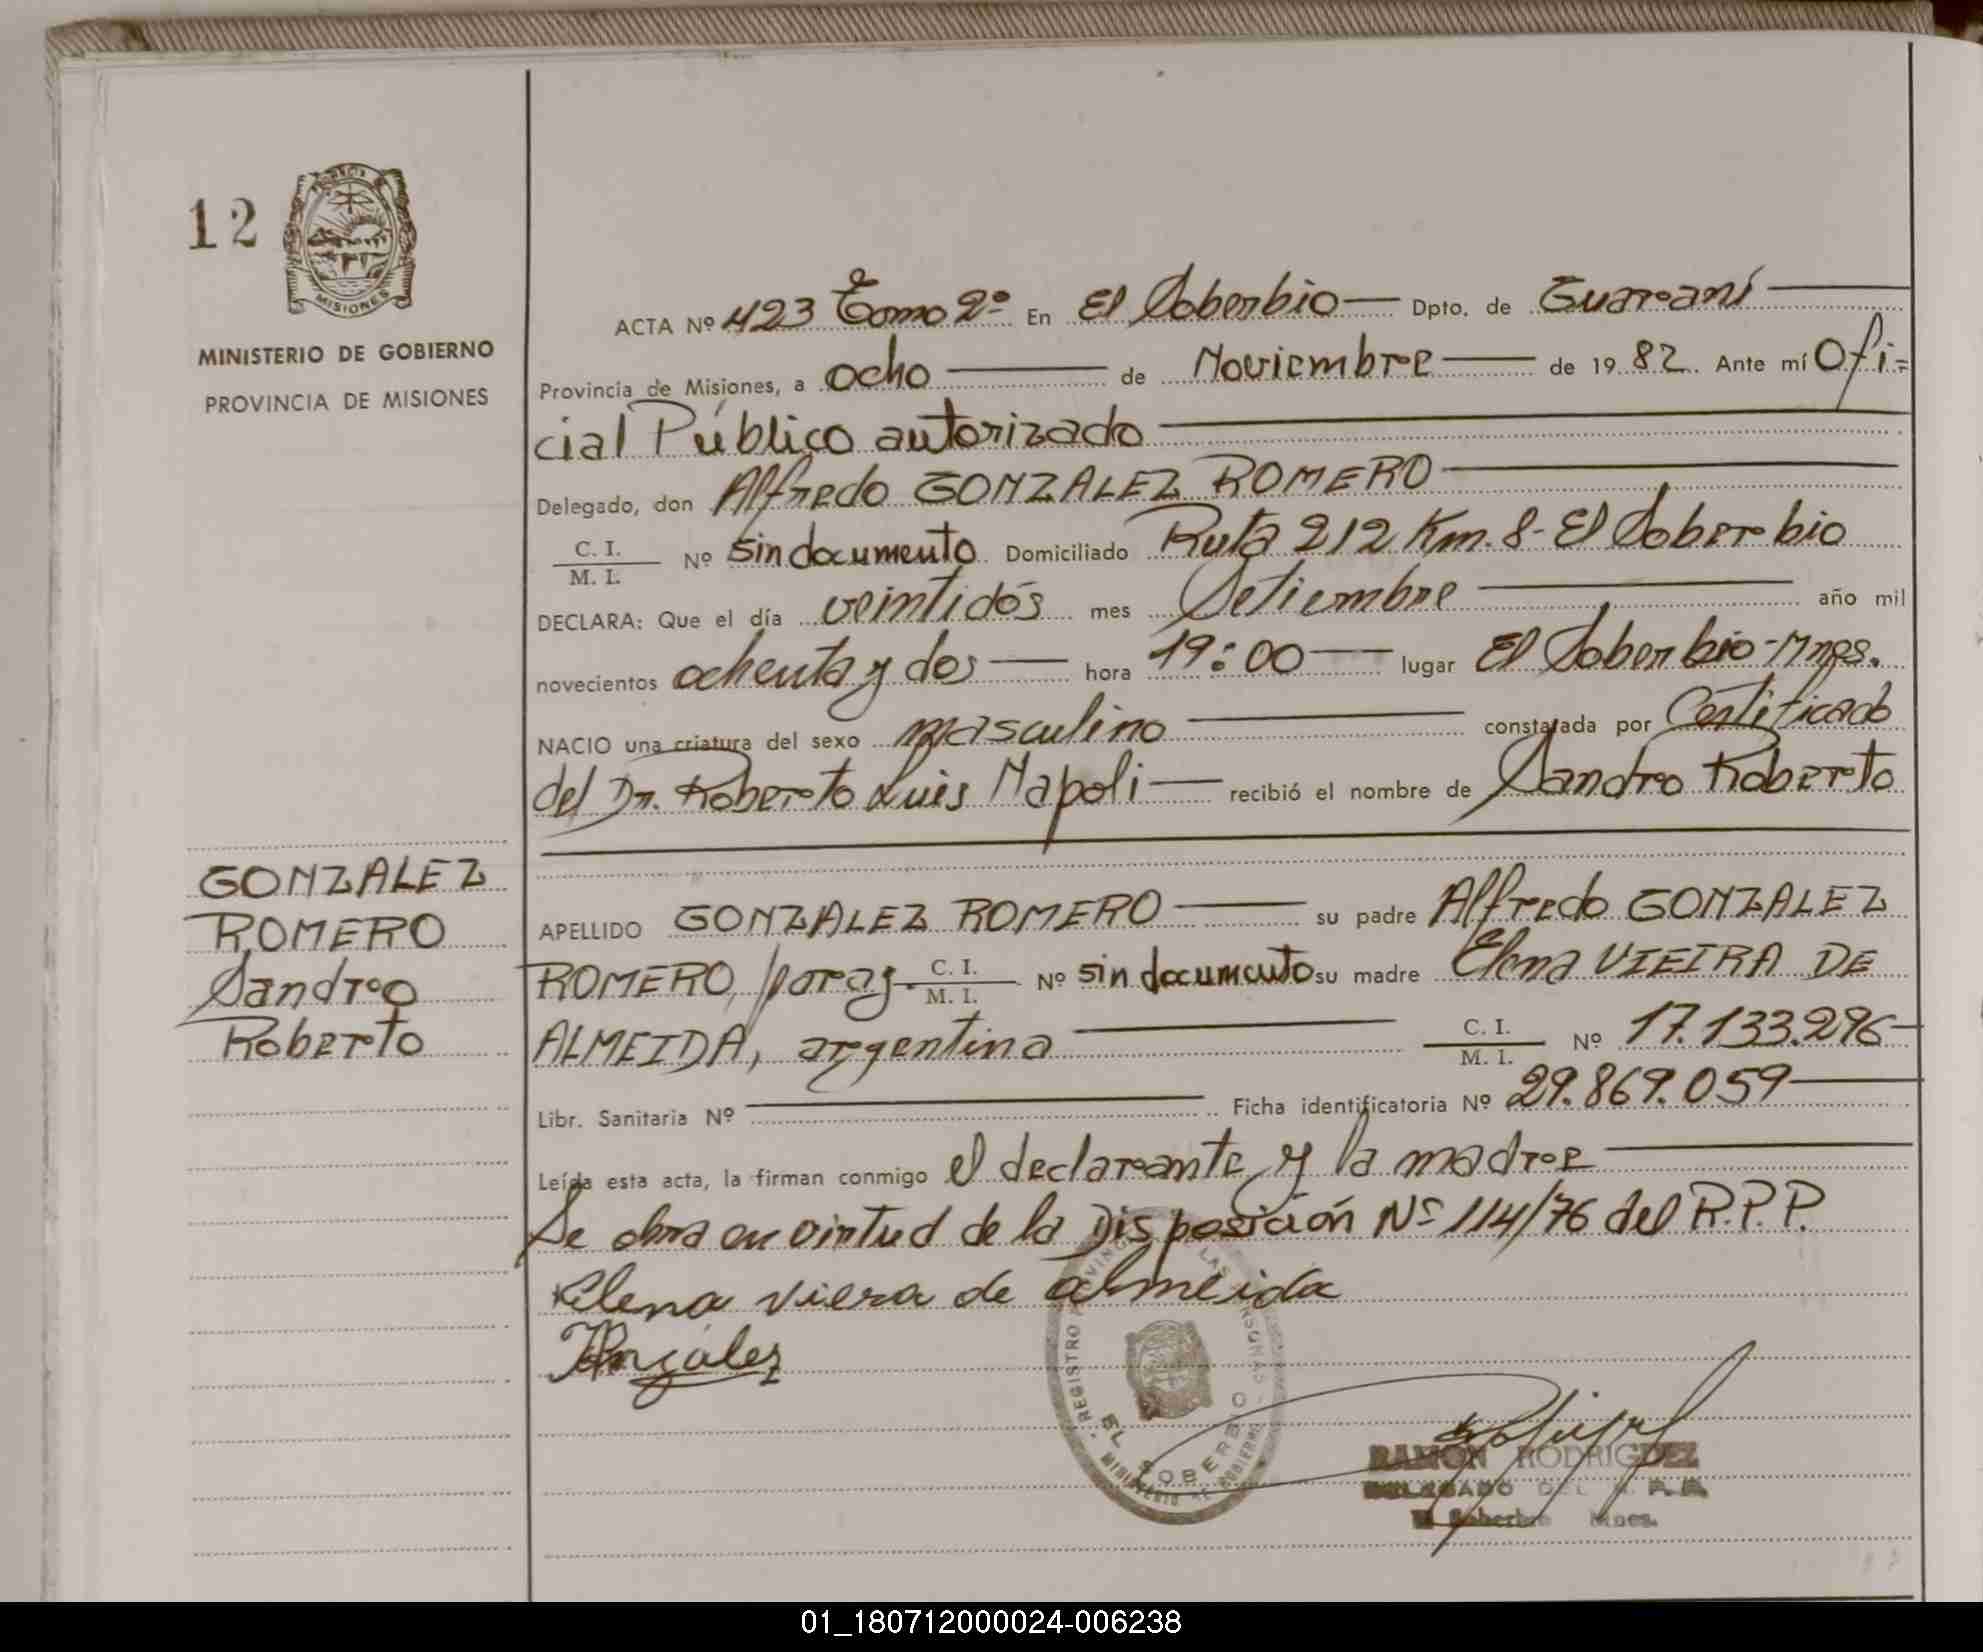 12
PROVINCIA DE
MISIONES
MINISTERIO DE GOBIERNO
PROVINCIA DE MISIONES
GONZALEZ
ROMERO
Sandro
Roberto
ACTA Nº 423 Tomo 2º En El Soberbio Dpto. de Guaraní
Provincia de Misiones, a ocho de Noviembre de 1982. Ante mí Ofi=
cial Público autorizado
Delegado, don Alfredo GONZALEZ ROMERO
C. I.
M. I. Nº sin documento Domiciliado Ruta 212 Km. 8- El Soberbio
DECLARA: Que el día veintidós mes Setiembre año mil
novecientos ochenta y dos hora 19:00 lugar El Soberbio-Mnes.
NACIO una criatura del sexo masculino constatada por Certificado
del Dr. Roberto Luis Napoli recibió el nombre de Sandro Roberto
APELLIDO GONZALEZ ROMERO su padre Alfredo GONZALEZ
ROMERO, parag. C. I. M. I. Nº sin documento su madre Elena VIEIRA DE
ALMEIDA, argentina C. I. M. I. Nº 17.133.296
Libr. Sanitaria Nº Ficha identificatoria Nº 29.869.059
Leída esta acta, la firman conmigo el declarante y la madre
Se obra en virtud de la Disposición Nº 114/76 del R.P.P.
Elena viera de almeida
Gonzalez
REGISTRO PROVINCIAL DE LAS PERSONAS
EL SOBERBIO
MINISTERIO DE GOBIERNO
RAMON RODRIGUEZ
DELEGADO DEL R. P. P.
El Soberbio Mnes.
01_180712000024-006238